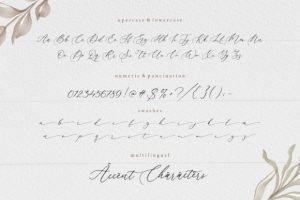 uppercase & lowercase
Aa Bb Cc Dd Ee Ff Gg Hh Ii Jj Kk Ll Mm Nn
Oo Pp Qq Rr Ss Tt Uu Vv Ww Xx Yy Zz
numeric & punctuation
0123456789!@#$%^?/{}():-
swashes
a b c d e f g h i j k l m
n o p q r s t u v w x y z
multilingual
Accent Characters